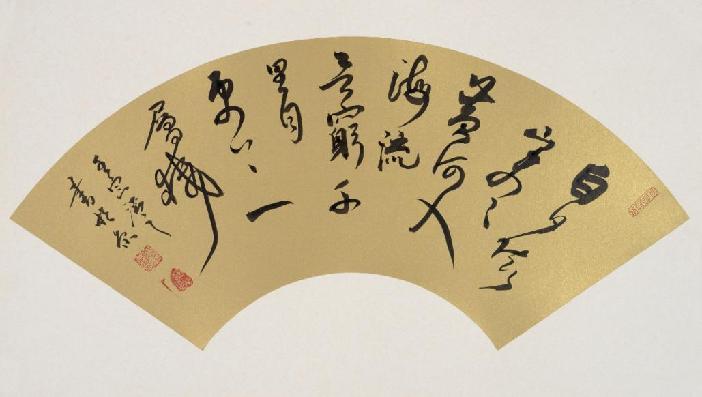 白日
依山盡
黃河入
海流
欲窮千
里目
更上一
層樓
書於京